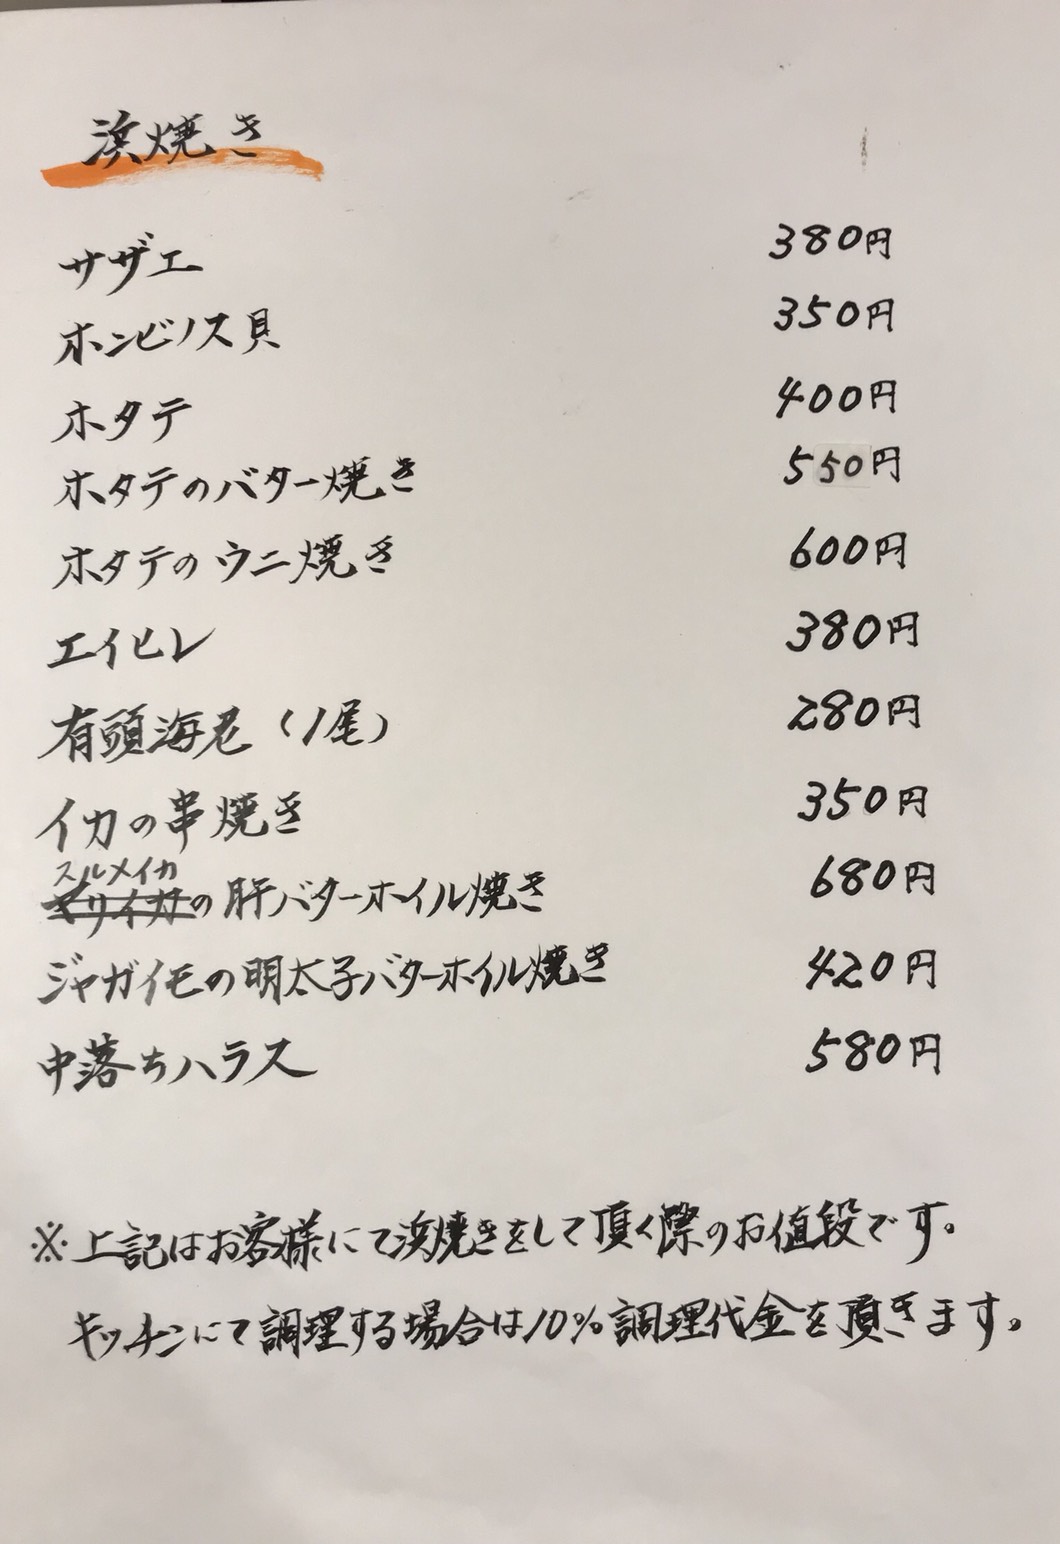 浜焼き
サザエ 380円
ホンビノス貝 350円
ホタテ 400円
ホタテのバター焼き 550円
ホタテのウニ焼き 600円
エイヒレ 380円
有頭海老（1尾） 280円
イカの串焼き 350円
スルメイカ
ヤリイカの肝バターホイル焼き 680円
ジャガイモの明太子バターホイル焼き 420円
中落ちハラス 580円
※上記はお客様にて浜焼きをして頂く際のお値段です。
キッチンにて調理する場合は10%調理代金を頂きます。